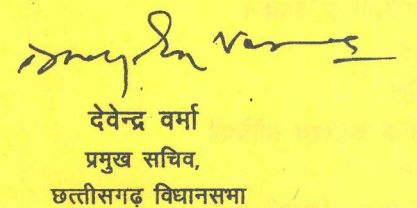 देवेन्द्र वर्मा
प्रमुख सचिव,
छत्तीसगढ़ विधानसभा